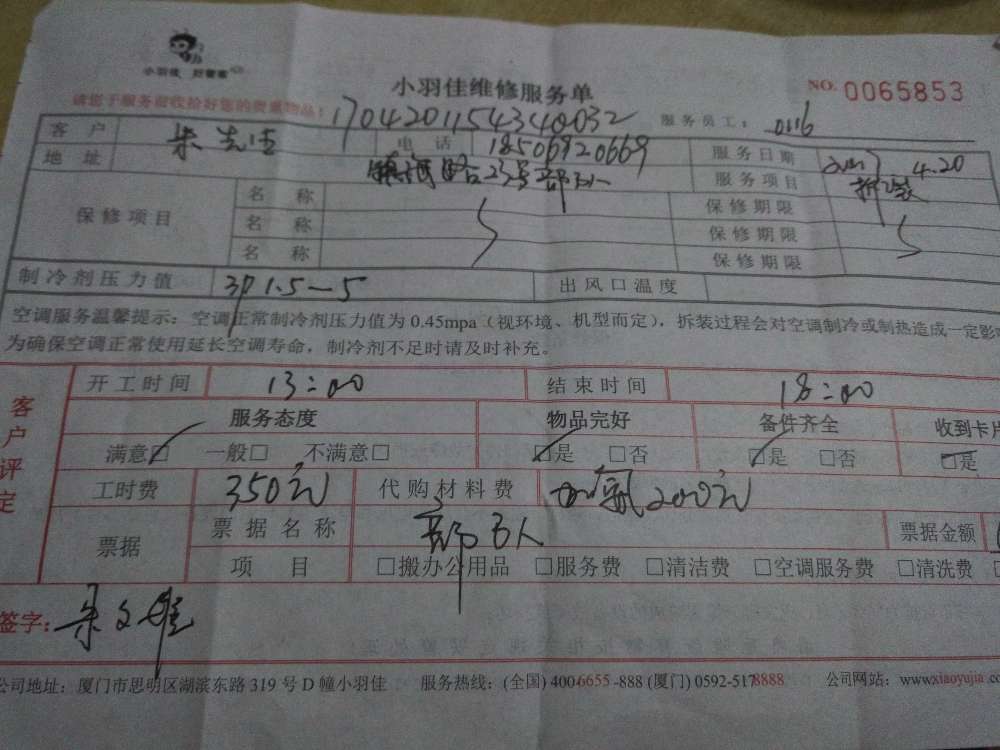 小羽佳 好管家
小羽佳维修服务单
NO. 0065853
请您于服务前收拾好您的贵重物品!
1704201154340032
服务员工: 0116
客户 朱先生 电话 18506920669 服务日期 2017 4.20
地址 镇海路23号部队 服务项目 拆装
保修项目 名称 保修期限
名称 保修期限
名称 保修期限
制冷剂压力值 3P 1.5—5 出风口温度
空调服务温馨提示:空调正常制冷剂压力值为0.45mpa(视环境、机型而定),拆装过程会对空调制冷或制热造成一定影
为确保空调正常使用延长空调寿命,制冷剂不足时请及时补充。
客户评定
开工时间 13:00 结束时间 18:00
服务态度 物品完好 备件齐全 收到卡片
满意☑ 一般□ 不满意□ ☑是 □否 ☑是 □否 ☑是
工时费 350元 代购材料费 加氟200元
票据 票据名称 部队 票据金额
项目 □搬办公用品 □服务费 □清洁费 □空调服务费 □清洗费
签字:
公司地址:厦门市思明区湖滨东路319号D幢小羽佳 服务热线:(全国)400-6655-888(厦门)0592-5178888 公司网站:www.xiaoyujia.co